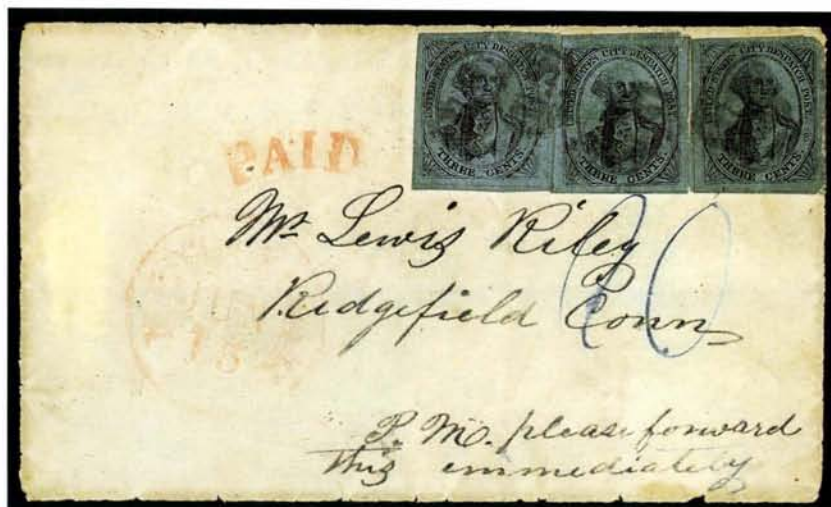 UNITED STATES CITY DESPATCH POST
THREE CENTS
UNITED STATES CITY DESPATCH POST
THREE CENTS
UNITED STATES CITY DESPATCH POST
THREE CENTS
PAID
Mr Lewis Riley
Ridgefield Conn
P. M. please forward
this emmediately